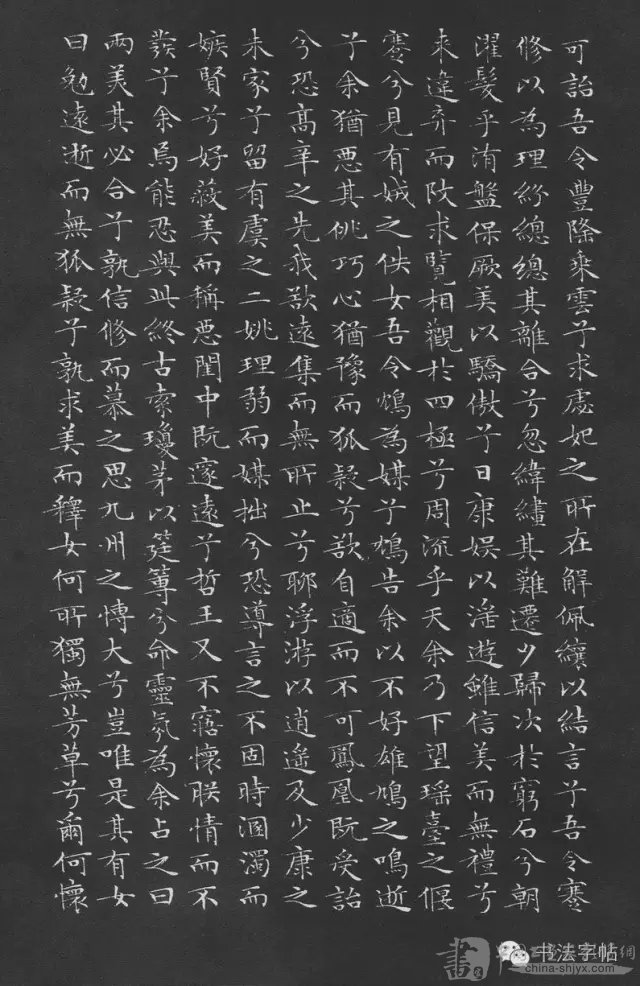 可詒吾令豐隆乘雲兮求虙妃之所在解佩纕以結言兮吾令蹇
修以為理紛總總其離合兮忽緯繣其難遷夕歸次於窮石兮朝
濯髮乎洧盤保厥美以驕傲兮日康娛以淫遊雖信美而無禮兮
來違弃而改求覽相觀於四極兮周流乎天余乃下望瑤臺之偃
蹇兮見有娀之佚女吾令鴆為媒兮鴆告余以不好雄鳩之鳴逝
兮余猶惡其佻巧心猶豫而狐疑兮欲自適而不可鳳凰既受詒
兮恐高辛之先我欲遠集而無所止兮聊浮游以逍遙及少康之
未家兮留有虞之二姚理弱而媒拙兮恐導言之不固時溷濁而
嫉賢兮好蔽美而稱惡閨中既邃遠兮哲王又不寤懷朕情而不
發兮余焉能忍與此終古索瓊茅以筳篿兮命靈氛為余占之曰
兩美其必合兮孰信修而慕之思九州之博大兮豈唯是其有女
曰勉遠逝而無狐疑兮孰求美而釋女何所獨無芳草兮爾何懷
书法字帖
china-shjyx.com